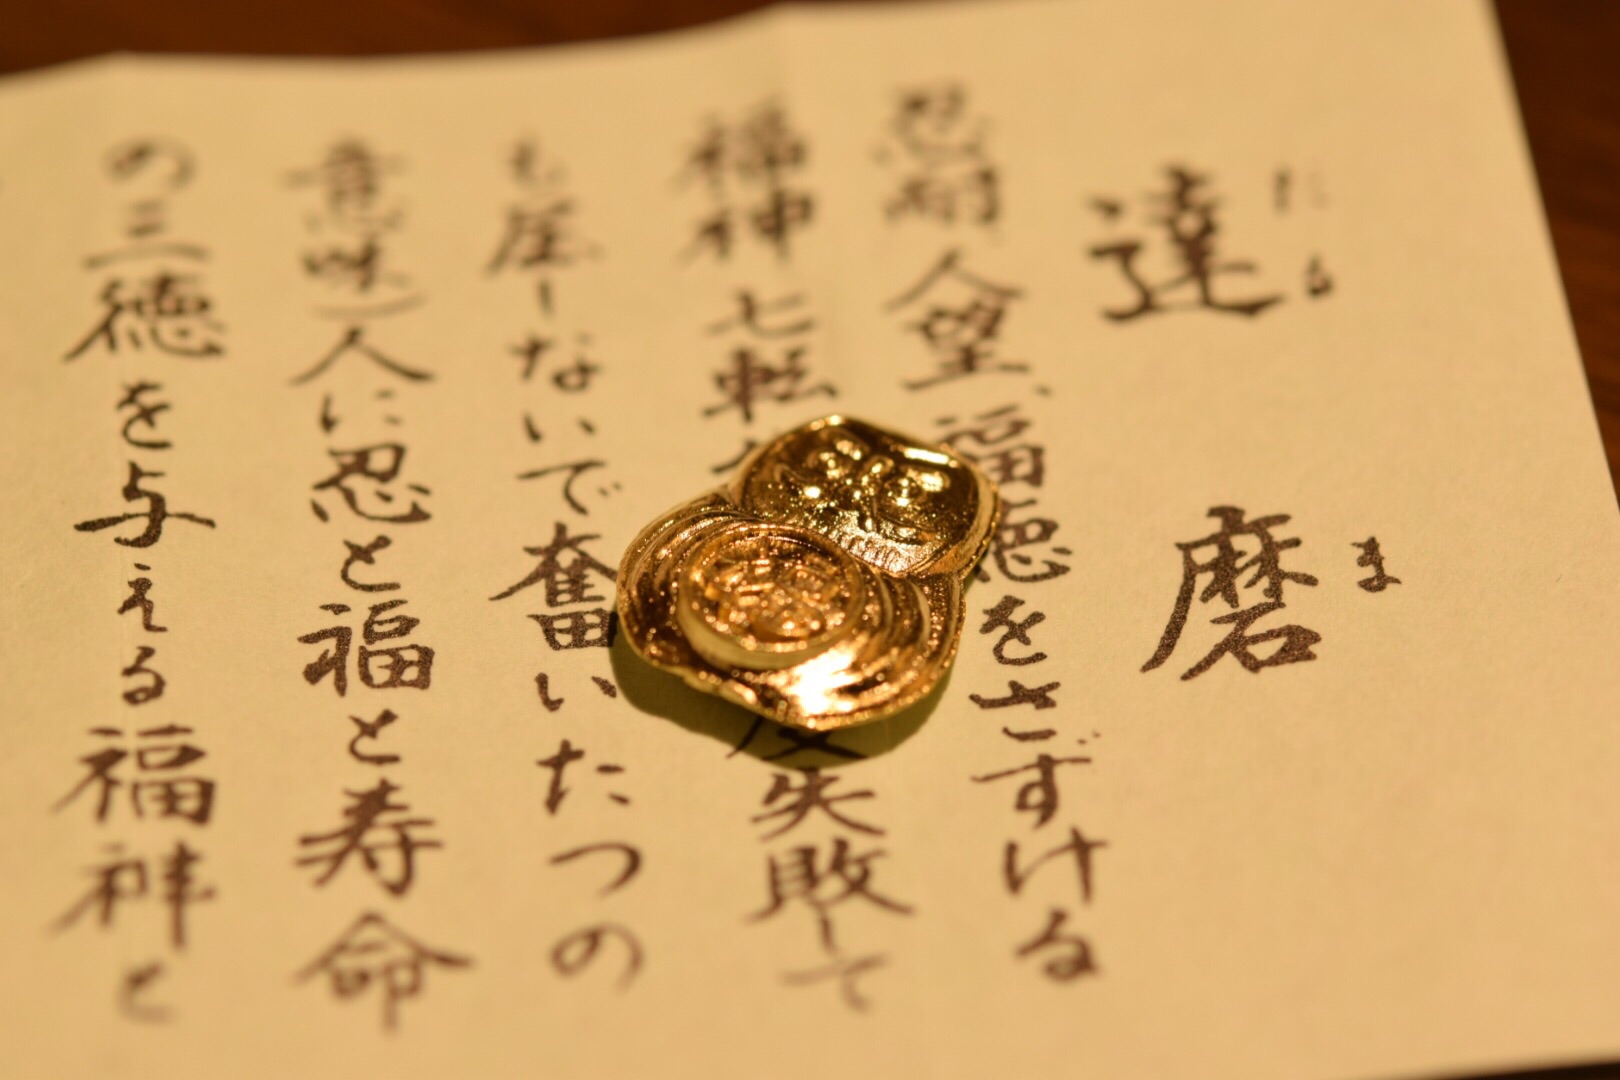 達磨
だるま
忍耐 人望、福徳をさずける
福神 七転 失敗して
も屈しないで奮いたつの
意味)人に忍と福と寿命
の三徳を与える福神と